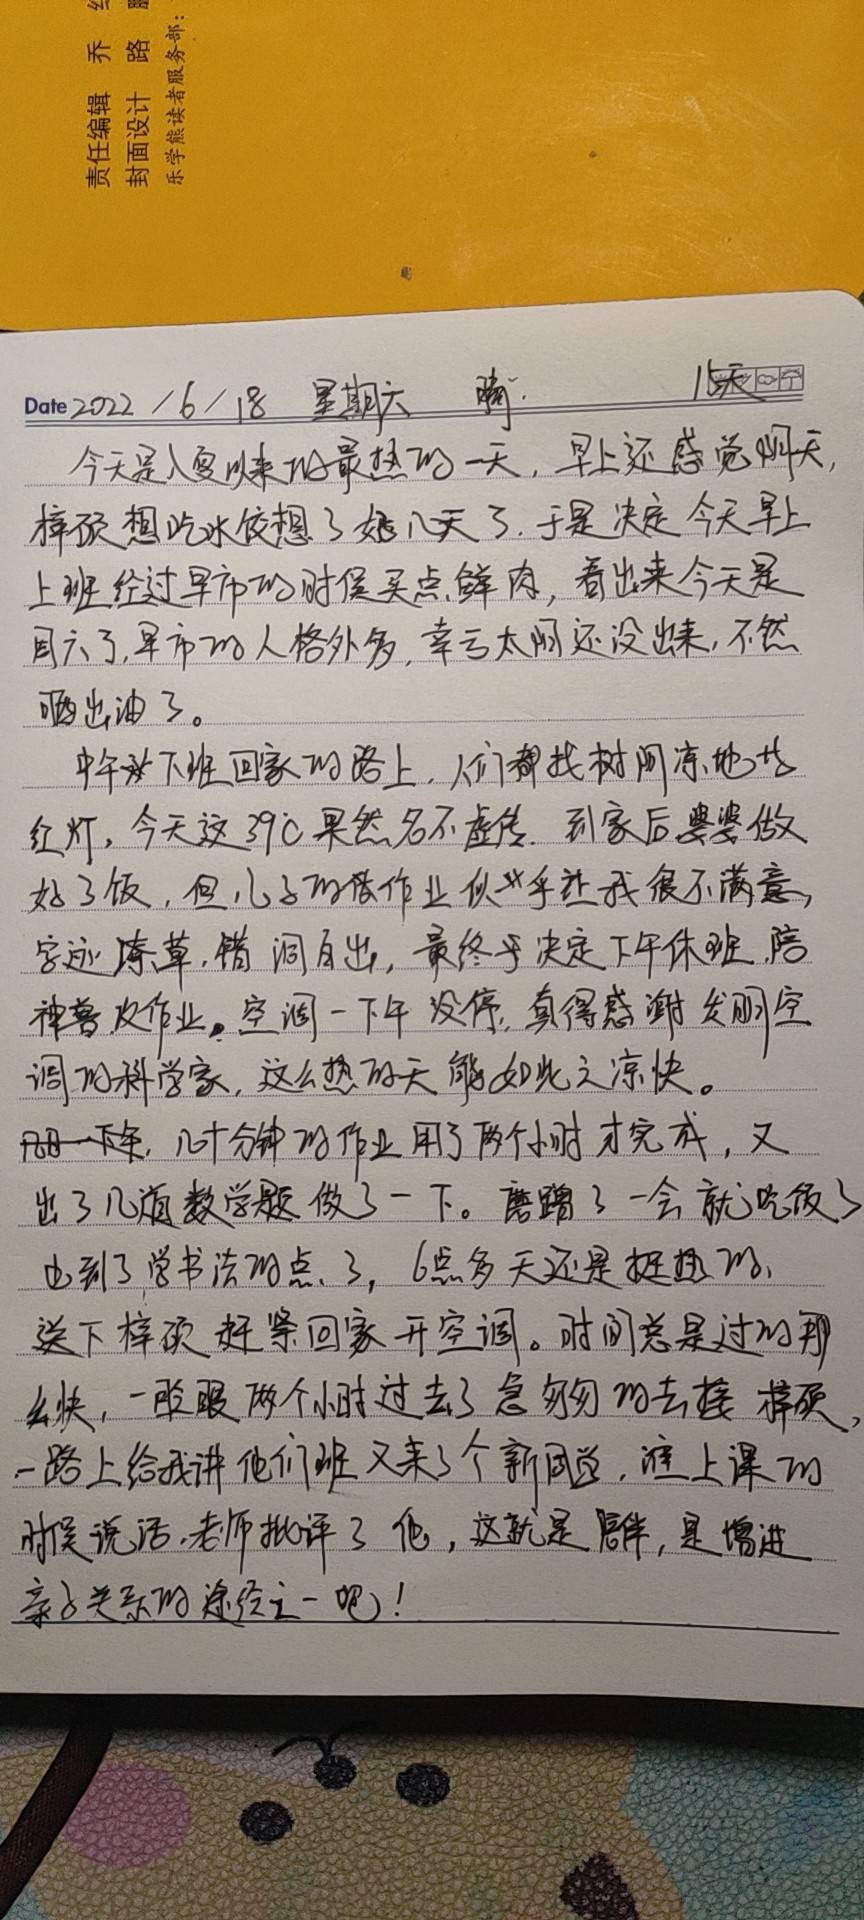 责任编辑 乔
封面设计 路
乐学熊读者服务部：
Date 2022/6/18 星期六 晴. 15天
今天是入夏以来的最热的一天，早上还感觉阴天，
梓硕想吃水饺想了好几天了.于是决定今天早上
上班经过早市的时侯买点鲜肉，看出来今天是
周六了，早市的人格外多，幸亏太阳还没出来，不然
晒出油了。
中午下班回家的路上，人们都找树阴凉地等
红灯，今天这39℃果然名不虚传.到家后婆婆做
好了饭，但儿子的做作业似乎让我很不满意，
字迹潦草，错洞百出，最终乎决定下午休班，陪
神兽改作业。空调一下午没停，真得感谢发明空
调的科学家，这么热的天能如此之凉快。
几十分钟的作业用了两个小时才完成，又
出了几道数学题做了一下。磨蹭了一会就吃饭了
也到了学书法的点了，6点多天还是挺热的，
送下梓硕赶紧回家开空调。时间总是过的那
么快，一眨眼两个小时过去了急匆匆的去接梓硕，
一路上给我讲他们班又来了个新同学，上课的
时侯说话，老师批评了他，这就是陪伴，是增进
亲子关系的途径之一吧！